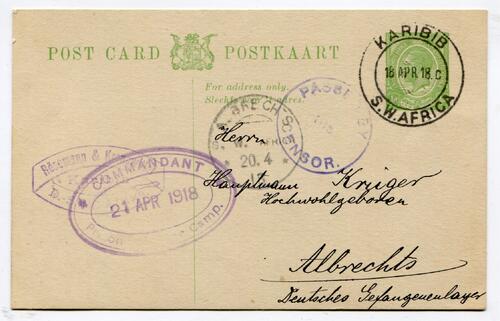 POST CARD POSTKAART
For address only.
Slechts adres.
KARIBIB
18 APR 18. C
S.W. AFRICA
PASSED BY
CENSOR.
20. 4
Rösemann &
COMMANDANT
21 APR 1918
Camp.
Herrn
Hauptmann Krüger
Hochwohlgeboren
Albrechts
Deutsches Gefangenenlager